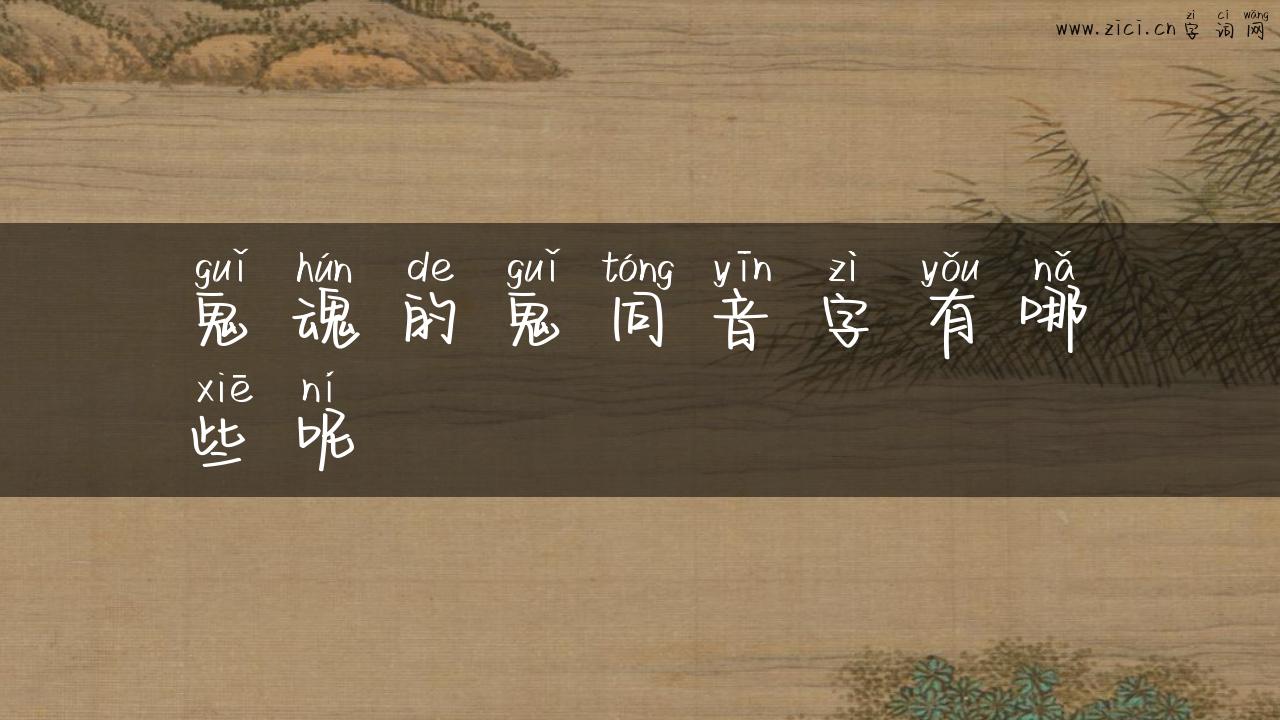 zì cí wǎng
www.zici.cn字词网
guǐ hún de guǐ tóng yīn zì yǒu nǎ
鬼魂的鬼同音字有哪
xiē ní
些呢